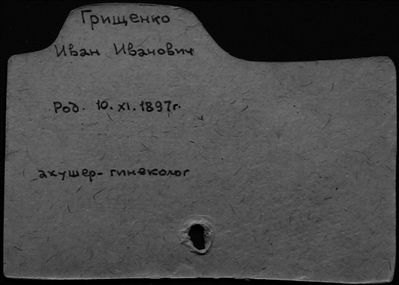 Грищенко
Иван Иванович
Род. 10.XI.1897г.
акушер-гинеколог